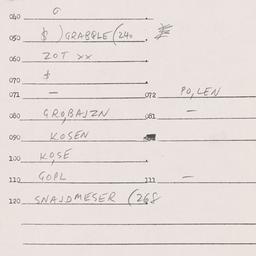 040 G
050 $ ) GRABBLE (240
060 ZOT xx
070 $
071 — 072 PO,LEN
080 GRO,BAJZN 081 —
090 KOSEN
100 KO,SE
110 GOPL 111 —
120 SNAJDMESER (268